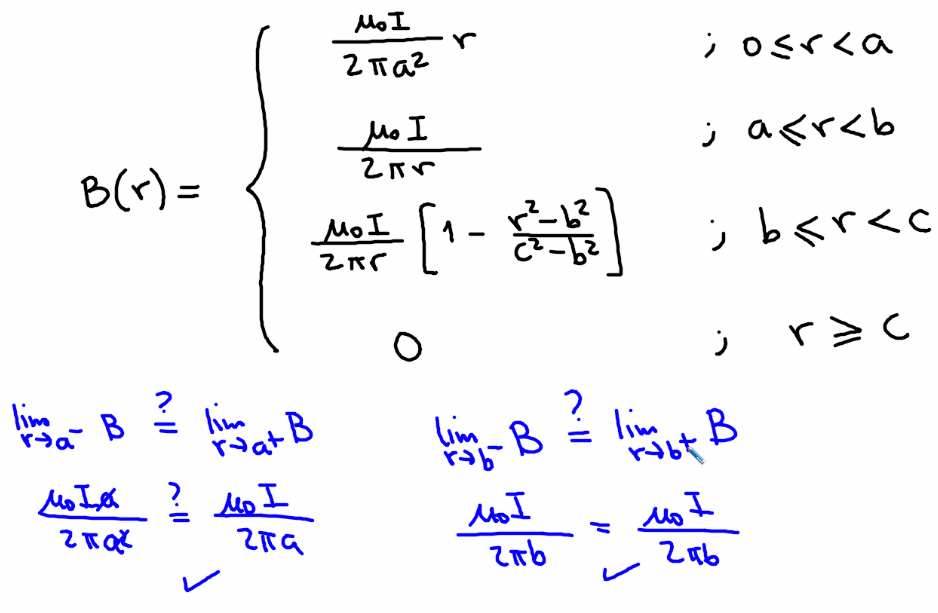 B(r) = { μ₀I/(2πa²) r ; 0 ≤ r < a
μ₀I/(2πr) ; a ≤ r < b
μ₀I/(2πr) [1 − (r²−b²)/(c²−b²)] ; b ≤ r < c
0 ; r ≥ c
lim r→a⁻ B ?= lim r→a⁺ B
μ₀Ia/(2πa²) ?= μ₀I/(2πa)
✓
lim r→b⁻ B ?= lim r→b⁺ B
μ₀I/(2πb) = μ₀I/(2πb)
✓